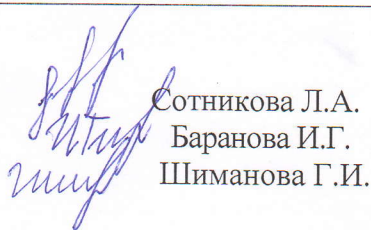 Сотникова Л.А.
Баранова И.Г.
Шиманова Г.И.